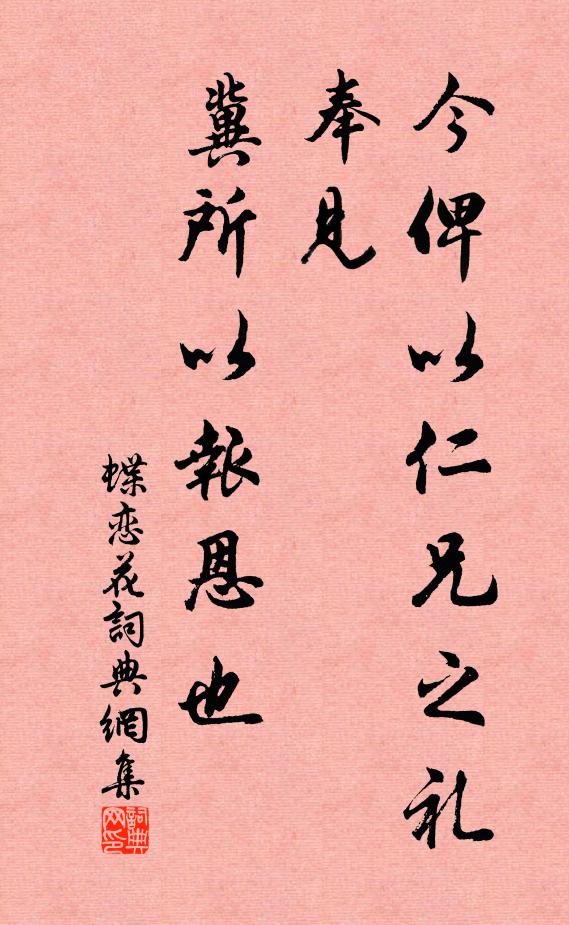 今俾以仁兄之礼
奉見
冀所以報恩也
蝶恋花詞典網集
詞典
网印